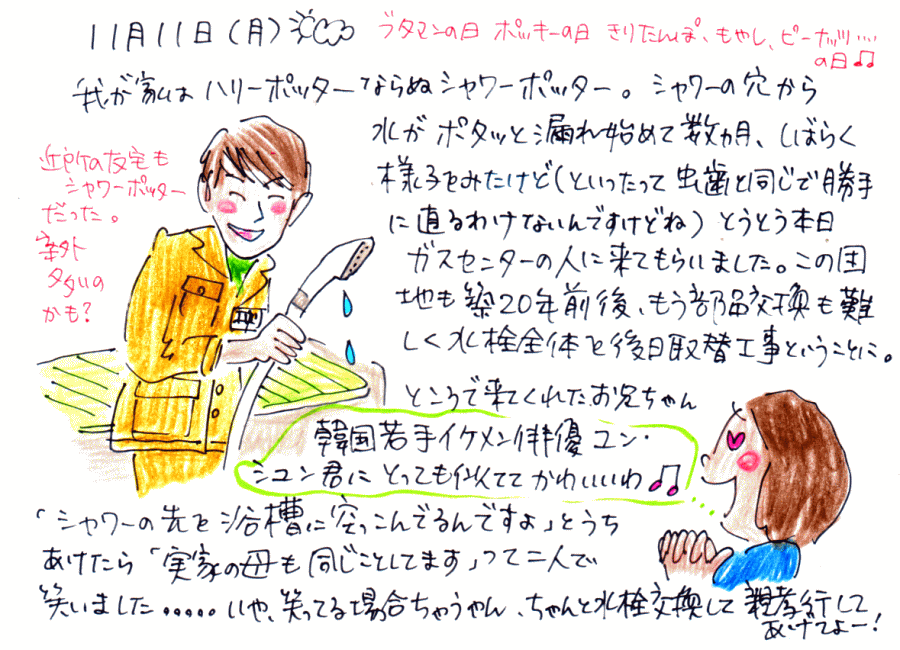 11月11日(月)
ブタマンの日 ポッキーの日 きりたんぽ、もやし、ピーナッツ…
の日♫
我が家は ハリーポッターならぬシャワーポッター。シャワーの穴から
水が ポタッと漏れ始めて数カ月、しばらく
様子をみたけど(といったって 虫歯と同じで勝手
に直るわけないんですけどね)とうとう本日
ガスセンターの人に来てもらいました。この団
地も築20年前後、もう部品交換も難
しく水栓全体を後日取替工事ということに。
近所の友宅も
シャワーポッター
だった。
案外
多いの
かも?
ところで来てくれたお兄ちゃん
韓国若手イケメン俳優ユン・
シユン君に とっても似てて かわいいわ♫
「シャワーの先を浴槽に突っこんでるんですよ」とうち
あけたら「実家の母も同じことしてます」って二人で
笑いました……いや、笑ってる場合ちゃうやん、ちゃんと水栓交換して親孝行して
あげてよー!